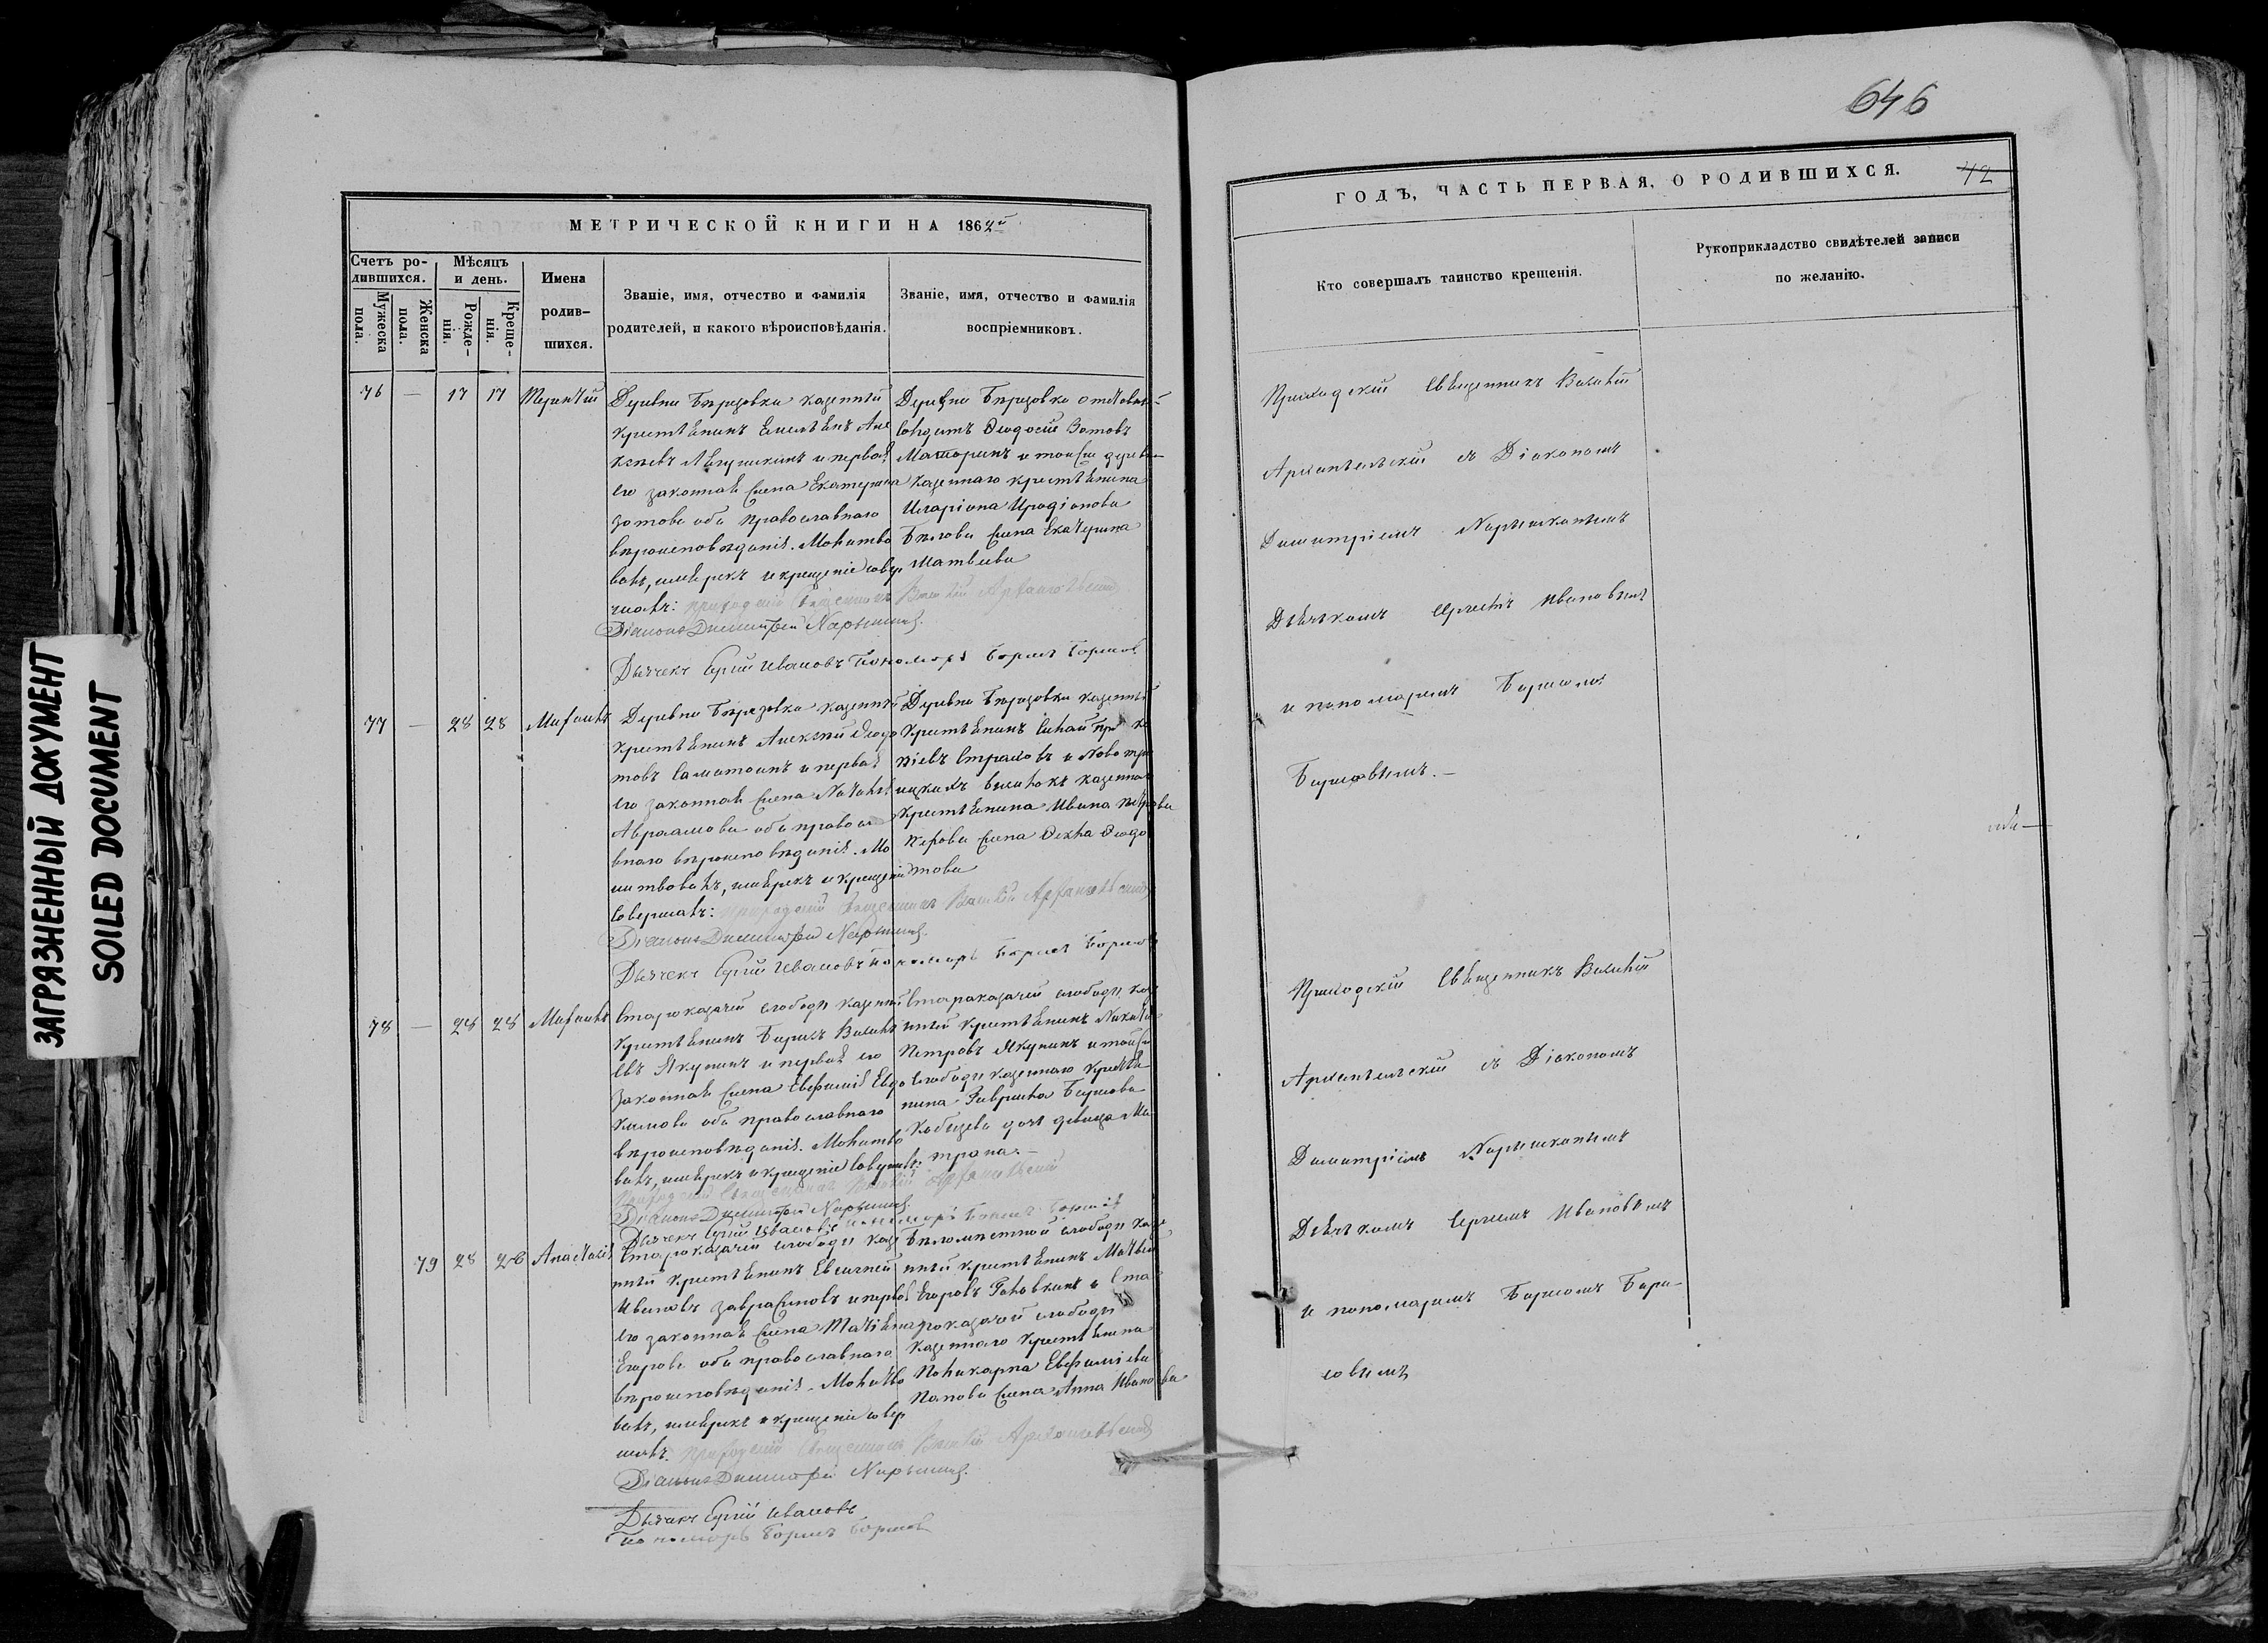 ЗАГРЯЗНЕННЫЙ ДОКУМЕНТ
SOILED DOCUMENT
МЕТРИЧЕСКОЙ КНИГИ НА 1862й
Счетъ родившихся.
Мужеска пола.
Женска пола.
Мѣсяцъ и день.
Рожденія.
Крещенія.
Имена
родив-
шихся.
Званіе, имя, отчество и фамилія
родителей, и какого вѣроисповѣданія.
Званіе, имя, отчество и фамилія
воспріемниковъ.
76 — 17 17 Терентій
Деревни Березовки казенный
крестьянинъ Емельянъ Але
его законная жена Екатерина
Зотова оба православнаго
вѣроисповѣданія. Молитво
валъ, имянрекъ и крещеніе совер
шалъ: приходскій Священникъ Василій Архангельскій
Діаконъ Димитрій Нарышкинъ
Дьячекъ Сергій Ивановъ Пономарь Борисъ Борисовъ
Деревни Березовки отставной
Солдатъ Ѳеодосій Зотовъ
и той же дерев
казеннаго крестьянина
Иларіона Иродіонова
Бѣлова жена Екатерина
Матвѣева
77 — 28 28 Михаилъ
Деревни Березовки казенный
крестьянинъ Алексѣй Ѳедо
товъ и первая
его законная жена Наталья
Авраамова оба правосла
внаго вѣроисповѣданія. Мо
литвовалъ, имянрекъ и крещеніе
Совершалъ: приходскій Священникъ Василій Архангельскій
Діаконъ Димитрій Нарышкинъ
Дьячекъ Сергій Ивановъ Пономарь Борисъ Борисовъ
Деревни Березовки казенный
крестьянинъ
и Ново
казенна
крестьянина Ивана Петрова
жена Ѳекла Ѳедо
това
78 — 28 28 Михаилъ
Староказачей слободы казенный
крестьянинъ Борисъ Василь
евъ Якунинъ и первая его
законная жена Евфимія Евдо
кимова оба православнаго
вѣроисповѣданія. Молитво
валъ, имянрекъ и крещеніе совершалъ:
Приходскій Священникъ Василій Архангельскій
Діаконъ Димитрій Нарышкинъ
Дьячекъ Сергій Ивановъ пономарь Борисъ Борисовъ
Староказачей слободы казе
нный крестьянинъ Никита
Петровъ Якунинъ и той же
слободы казеннаго крестья
нина Гавриила Борисова
Кобзева дочь девица Ма
трона.
79 28 28 Анастасія
Староказачей слободы казе
нный крестьянинъ Евсигней
Ивановъ Завражновъ и первая
его законная жена Татьяна
Егорова оба православнаго
вѣроисповѣданія. Молитво
валъ, имянрекъ и крещеніе совер
шалъ. Приходскій Священникъ Василій Архангельскій
Діаконъ Димитрій Нарышкинъ
Дьячекъ Сергій Ивановъ
Пономарь Борисъ Борисовъ
Бѣломѣстной слободы казе
нный крестьянинъ Матвѣй
Егоровъ Головкинъ и Ста
роказачей слободы
казеннаго крестьянина
Поликарпа Евфиміева
Попова жена Анна Иванова
646
ГОДЪ, ЧАСТЬ ПЕРВАЯ, О РОДИВШИХСЯ.
42
Кто совершалъ таинство крещенія.
Рукоприкладство свидѣтелей записи
по желанію.
Приходскій Священникъ Василій
Архангельскій съ Діакономъ
Димитріемъ Нарышкинымъ
Дьячкомъ Сергіемъ Ивановымъ
и пономаремъ Борисомъ
Борисовымъ.—
Приходскій Священникъ Василій
Архангельскій съ Діакономъ
Димитріемъ Нарышкинымъ
Дьячкомъ Сергіемъ Ивановымъ
и пономаремъ Борисомъ Бори-
совымъ